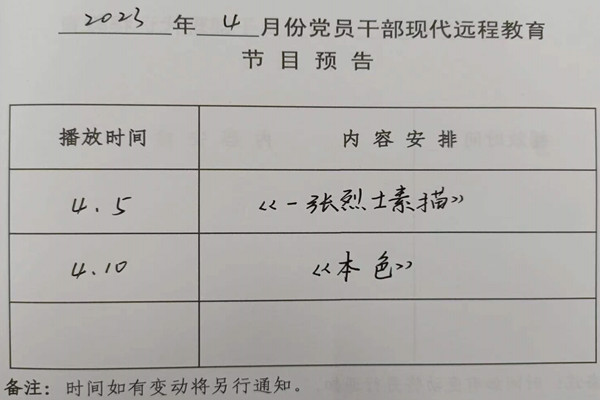 2023年4月份党员干部现代远程教育
节目预告
播放时间 内容安排
4.5 《一张烈士素描》
4.10 《本色》
备注：时间如有变动将另行通知。